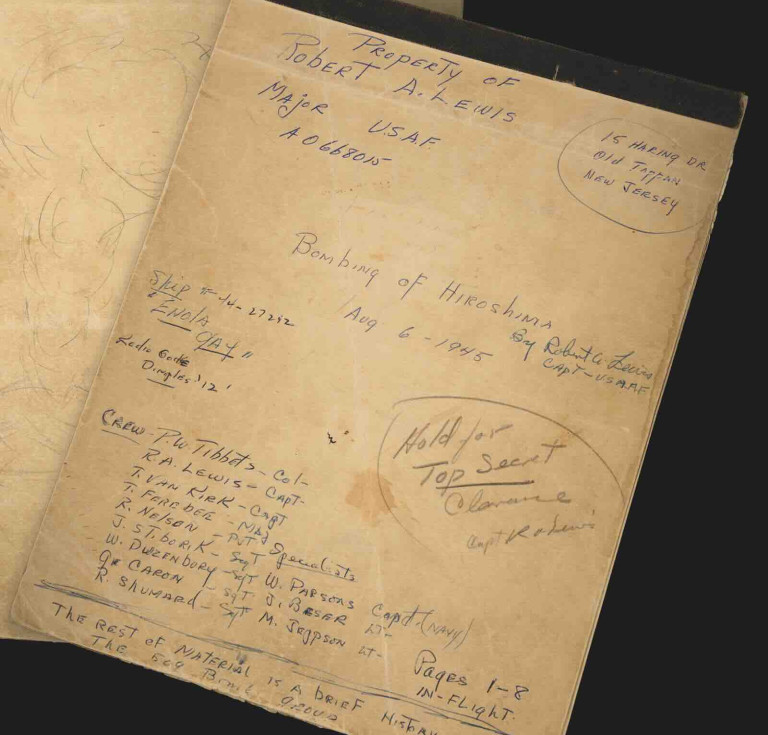 PROPERTY OF
ROBERT A. LEWIS
MAJOR USAF
AO668015
15 HARING DR.
Old TAPPAN
NEW JERSEY
BOMBING OF HIROSHIMA
Aug 6-1945
By Robert A. Lewis
CAPT-USAAF
Ship #44-27292
"ENOLA
GAY"
Radio Code
Dimples '12'
Hold for
Top Secret
Clearance
Capt R A Lewis
CREW-P.W. TIBBETS-Col-
R.A. LEWIS-CAPT-
T. VAN KIRK-Capt
T. FEREBEE-MAJ
R. NELSON-PVT
J. STIBORIK-SgT
W. DUZENBURY-SgT
G. CARON-SgT
R. SHUMARD-SgT
Specialists
W. PARSONS Capt. (NAVY)
J. BESER LT-
M. JEPPSON LT-
PAGES 1-8
IN-FLIGHT.
THE REST OF MATERIAL IS A BRIEF HISTORY
THE 509 BOMB. GROUP